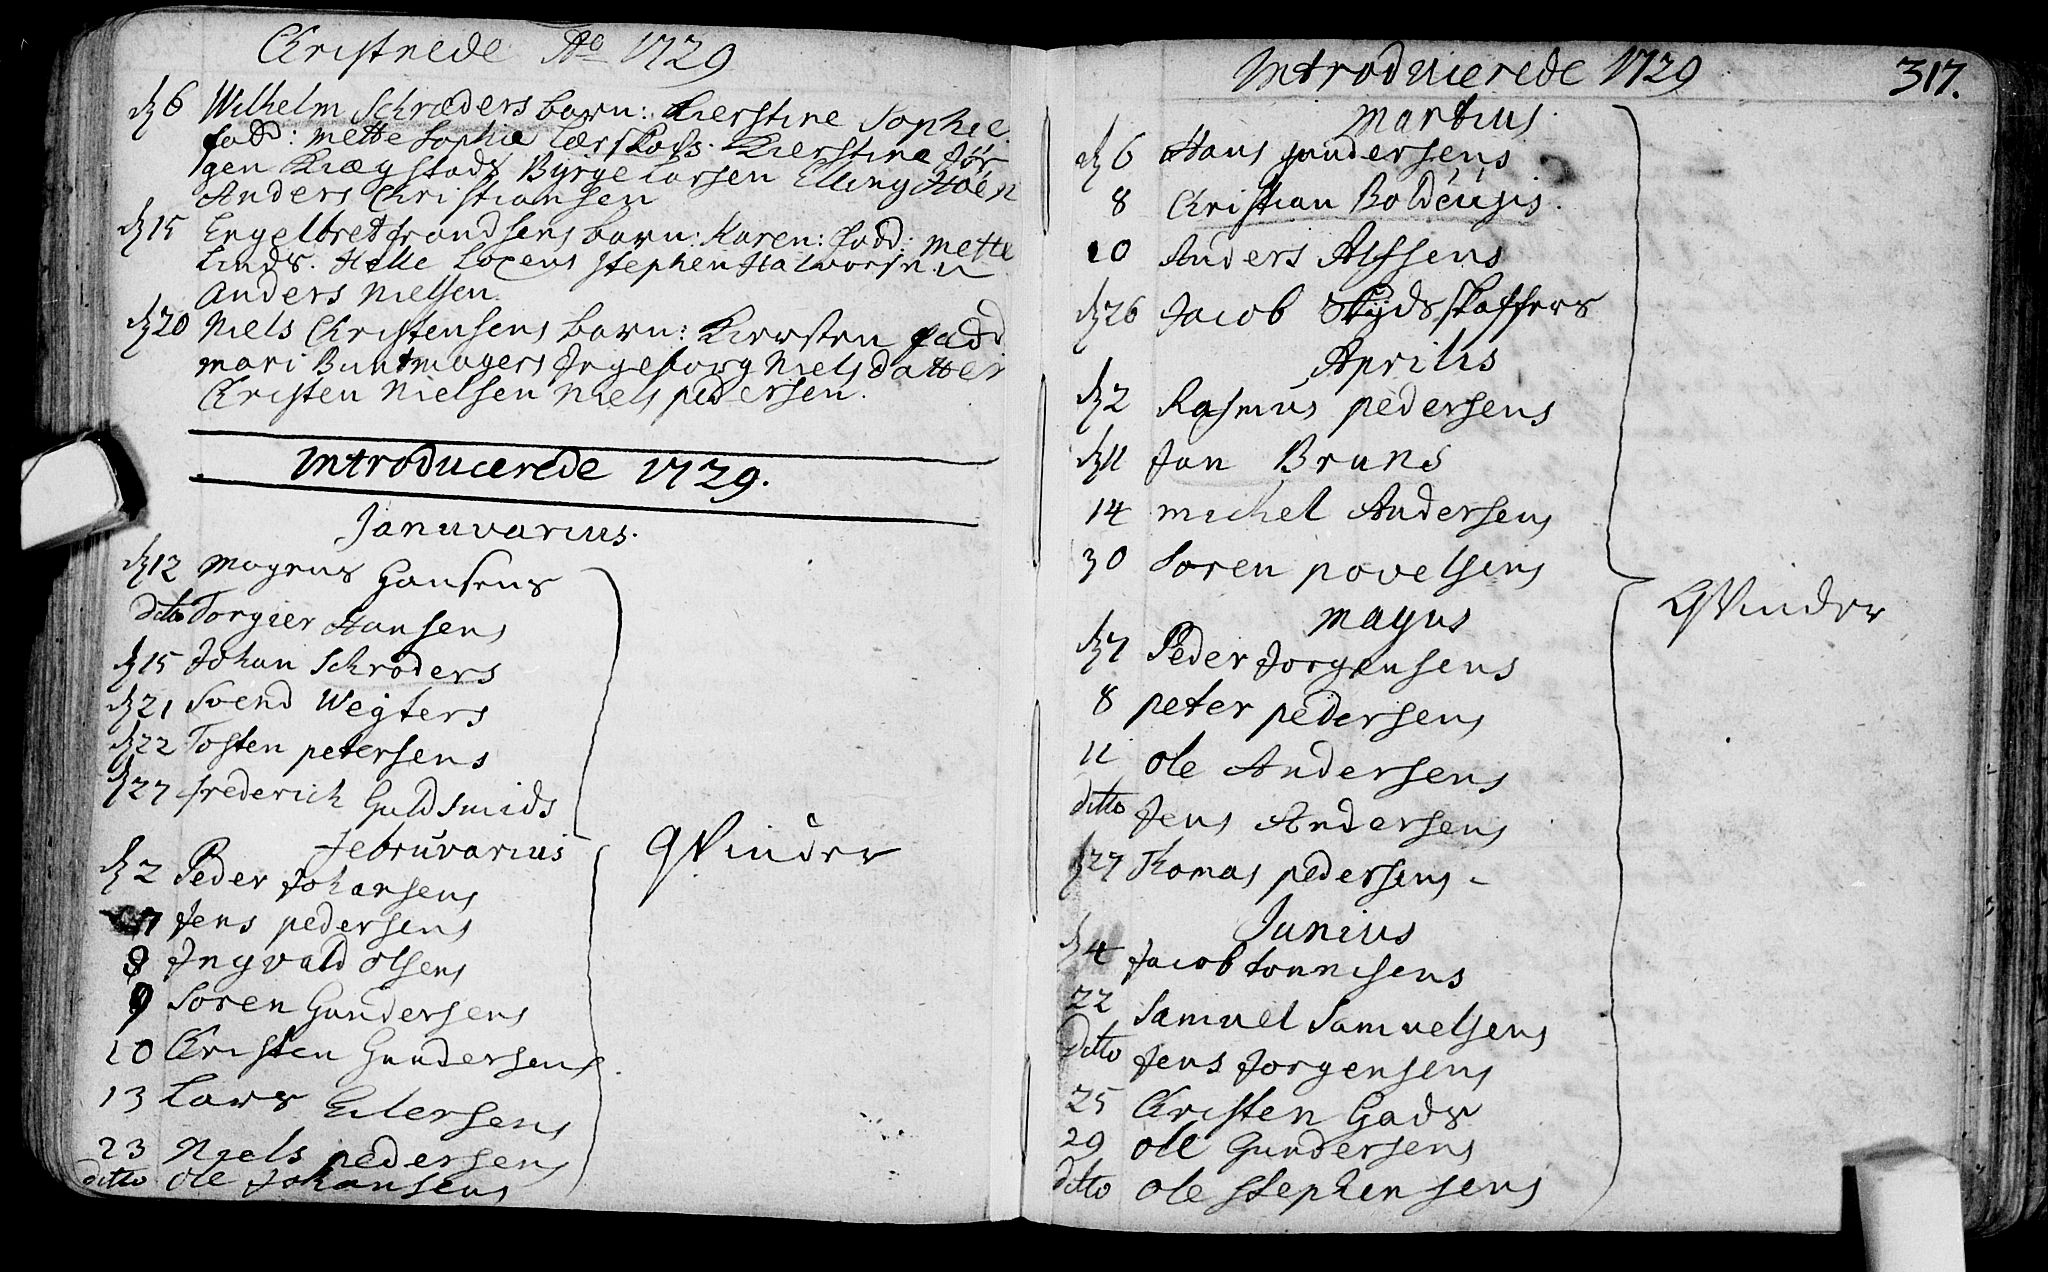 Christnede Ao 1729
d. 6 Wilhelm Schrøders barn: Kierstine Sophie
fadd: Mette Sophie Kierstine Jør
gen Byrge Larsen Elling Hoen
Anders Christiansen
d. 15 Engelbret frandsens barn: Karen: fadd: Mette
Linds. Helle Stephen Halvorsen
Anders Nielsen
d. 20 Niels Christensens barn: Kiersten fadd
mari Buntmagers Ingeborg Nielsdatter
Christen Nielsen Niels pedersen.
Introducerede 1729.
Januvarius.
d. 12 Mogens Hansens
ditto Torgier Hansens
d. 15 Johan Schrøders
d. 21 Svend Wegters
d. 22 Tosten petersens
d. 27 frederich Guldsmids
Februvarius
d. 2 Peder Johansens
7 Jens pedersens
8 Ingvald Olsens
9 Søren Gundersens
10 Christen Gundersens
13 Lars Eilersens
23 Niels pedersens
ditto Ole Johansens
Qvinder
Introducerede 1729
317.
Martius.
d. 6 Hans gundersens
8 Christian
10 Anders Alfsens
d. 26 Jacob Skydsskaffers
Aprilis
d. 2 Rasmus pedersens
d. 11 Jan Bruns
14 michel Andersens
30 Søren povelsens
Mayus
d. 7 Peder Jørgensens
8 peter pedersens
11 Ole Andersens
ditto Jens Andersens
d. 27 Thomas pedersens -
Junius
d. 4 Jacob tonnesens
22 Samuel Samuelsens
ditto Jens Jørgensens
25 Christen Gads
29 Ole Gundersens
ditto Ole Stephensens
Qvinder